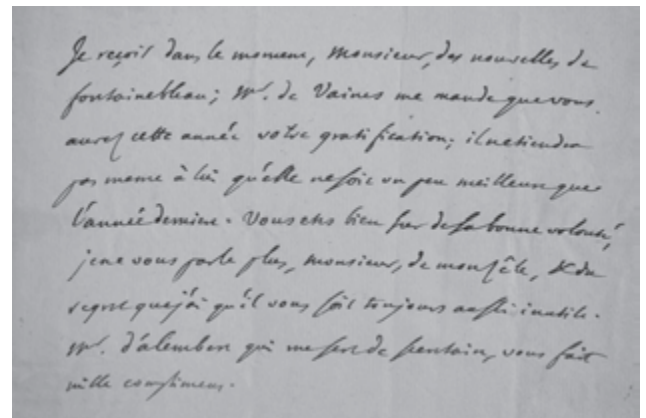 Je reçois dans le moment, Monsieur, des nouvelles de
fontainebleau; Mr. de Vaines me mande que vous
aurez cette année votre gratification; il ne tiendra
pas meme à lui qu'elle ne soit un peu meilleure que
l'année derniere. Vous etes bien sur de sa bonne volonté,
je ne vous parle plus, monsieur, de mon zêle, & du
regret que j'ai qu'il vous soit toujours aussi inutile.
Mr. d'alembert qui me sert de secretaire, vous fait
mille complimens.